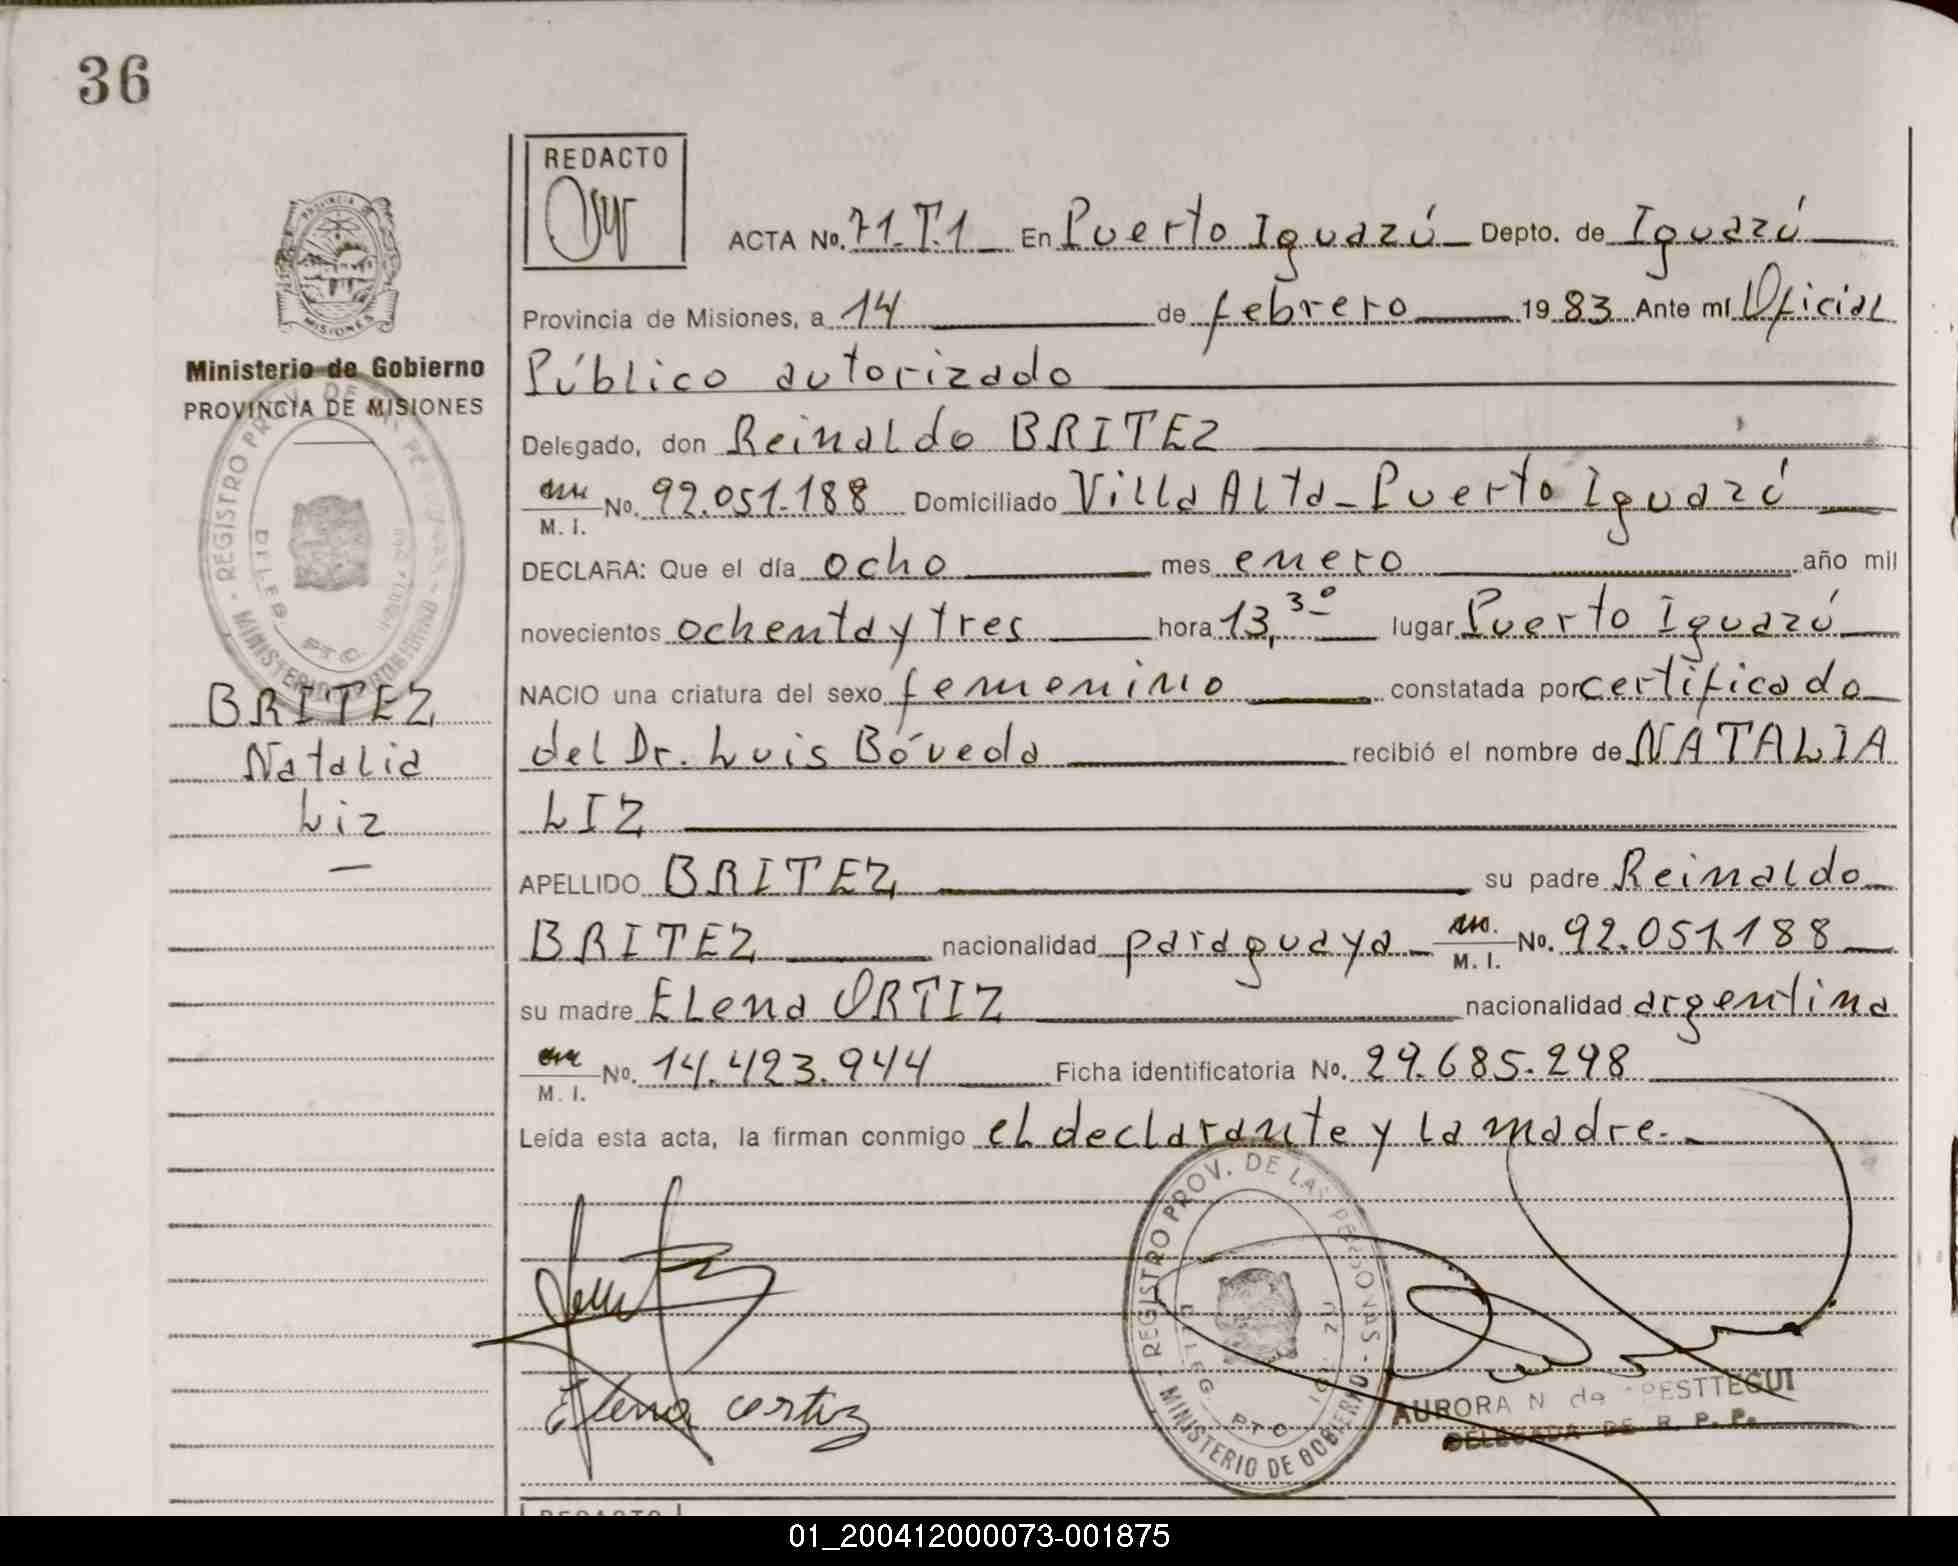 36
REDACTO
ACTA No. 71.T.1 En Puerto Iguazú Depto. de Iguazú
Provincia de Misiones, a 14 de febrero 1983 Ante mí Oficial
Público autorizado
Delegado, don Reinaldo BRITEZ
M. I. No. 92.051.188 Domiciliado Villa Alta - Puerto Iguazú
DECLARA: Que el día ocho mes enero año mil
novecientos ochenta y tres hora 13,30 lugar Puerto Iguazú
NACIO una criatura del sexo femenino constatada por certificado
del Dr. Luis Bóveda recibió el nombre de NATALIA
LIZ
APELLIDO BRITEZ su padre Reinaldo
BRITEZ nacionalidad paraguaya M. I. No. 92.051.188
su madre Elena ORTIZ nacionalidad argentina
M. I. No. 14.423.944 Ficha identificatoria No. 29.685.298
Leída esta acta, la firman conmigo el declarante y la madre.-
PROVINCIA DE
MISIONES
Ministerio de Gobierno
PROVINCIA DE MISIONES
REGISTRO PROV. DE LAS PERSONAS - MINISTERIO DE GOBIERNO
DELEG. PTO.
BRITEZ
Natalia
Liz
Elena ortiz
REGISTRO PROV. DE LAS PERSONAS - MINISTERIO DE GOBIERNO
DELEG. PTO.
AURORA N de
DELEGADA DE R. P. P.
REDACTO
01_200412000073-001875